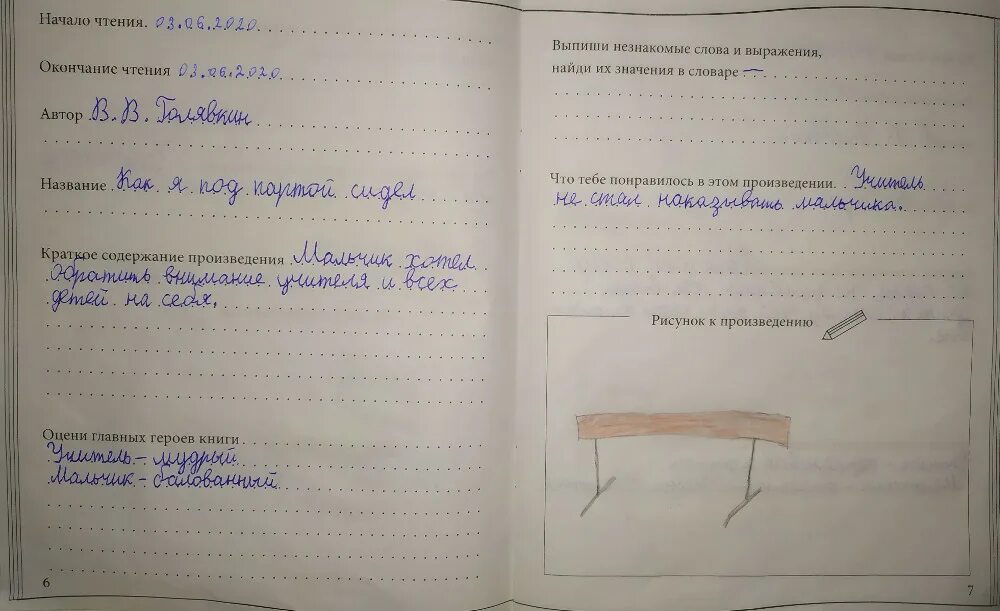 Начало чтения. 03.06.2020
Окончание чтения 03.06.2020
Автор В. В. Голявкин
Название Как я под партой сидел
Краткое содержание произведения Мальчик хотел
обратить внимание учителя и всех
детей на себя.
Оцени главных героев книги
Учитель – мудрый
Мальчик – балованный
6
Выпиши незнакомые слова и выражения,
найди их значения в словаре –
Что тебе понравилось в этом произведении. Учитель
не стал наказывать мальчика.
Рисунок к произведению
7